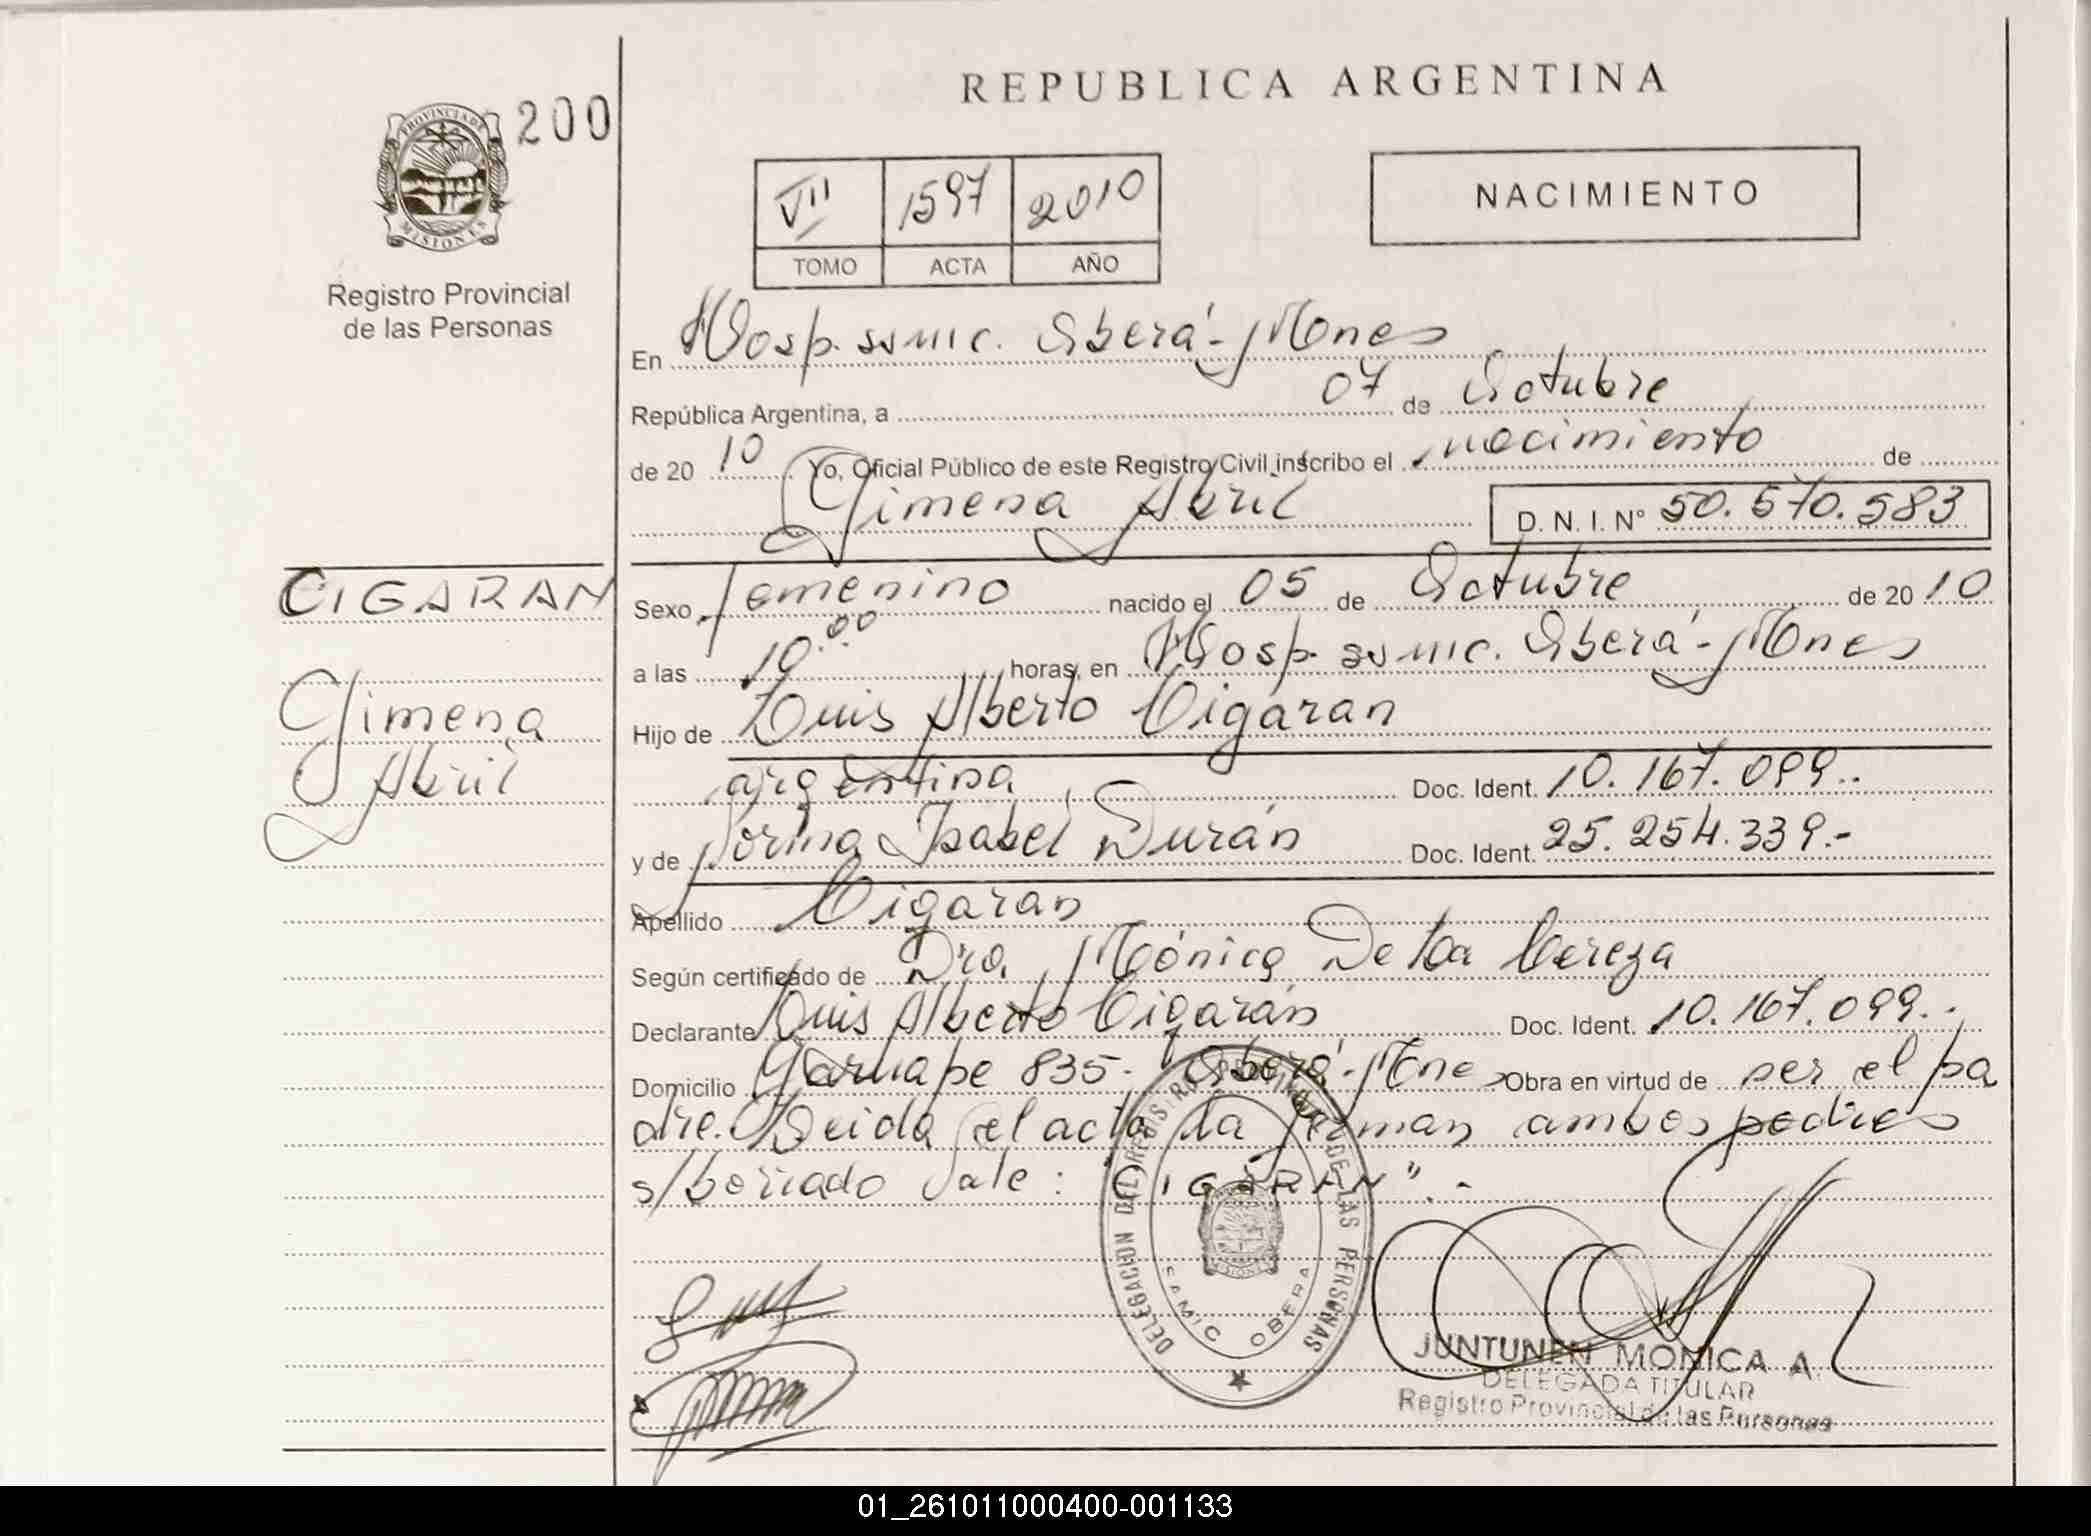 REPUBLICA ARGENTINA
200
PROVINCIA DE
MISIONES
Registro Provincial
de las Personas
VII 1597 2010
TOMO ACTA AÑO
NACIMIENTO
En Hosp. ssmic. Oberá-Mnes
República Argentina, a 07 de Octubre
de 20 10 Yo, Oficial Público de este Registro Civil inscribo el nacimiento de
Gimena Abril D. N. I. N° 50.570.583
CIGARAN
Gimena
Abril
Sexo femenino nacido el 05 de Octubre de 20 10
a las 10.00 horas, en Hosp. ssmic. Oberá-Mnes
Hijo de Luis Alberto Cigaran
argentina Doc. Ident. 10.167.099.-
y de Norma Isabel Durán Doc. Ident. 25.254.339.-
Apellido Cigaran
Según certificado de Dra. Mónica De La Cereza
Declarante Luis Alberto Cigarán Doc. Ident. 10.167.099.-
Domicilio Garuape 835- Oberá-Mnes Obra en virtud de ser el pa
dre. Leida el acta la firman ambos padres
s/borrado Vale: CIGARAN".-
DELEGACION DEL REGISTRO PROVINCIAL DE LAS PERSONAS
SAMIC OBERA
MISIONES
JUNTUNEN MONICA A.
DELEGADA TITULAR
Registro Provincial de las Personas
01_261011000400-001133